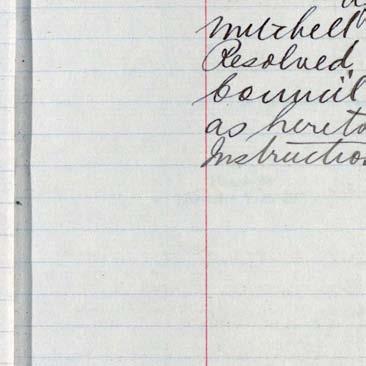 Mitchell
Resolved
Council
as hereto
Instruction